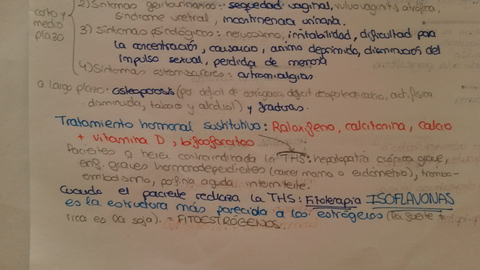 2) Síntomas genitourinarios: sequedad vaginal, vulvovaginitis atrófica,
corto y medio plazo
síndrome uretral, incontinencia urinaria.
3) Síntomas psicológicos: nerviosismo, irritabilidad, dificultad para
la concentración, cansancio, ánimo deprimido, disminución del
impulso sexual, perdida de memoria
4) Síntomas osteomusculares: artromialgias
a largo plazo: osteoporosis (por déficit de estrógenos, déficit act. física
disminuida, tabaco y alcohol) y fracturas.
Tratamiento hormonal sustitutivo: Raloxifeno, calcitonina, Calcio
+ vitamina D, bifosfonatos
Pacientes q tienen contraindicada la THS: hepatopatía crónica grave,
enf. graves hormonodependientes (cáncer mama o endometrio), trombo-
embolismo, porfiria aguda intermitente.
Cuando el paciente rechaza la THS: Fitoterapia ISOFLAVONAS
es la estructura más parecida a los estrógenos (la fuente +
rica es la soja). = FITOESTRÓGENOS.